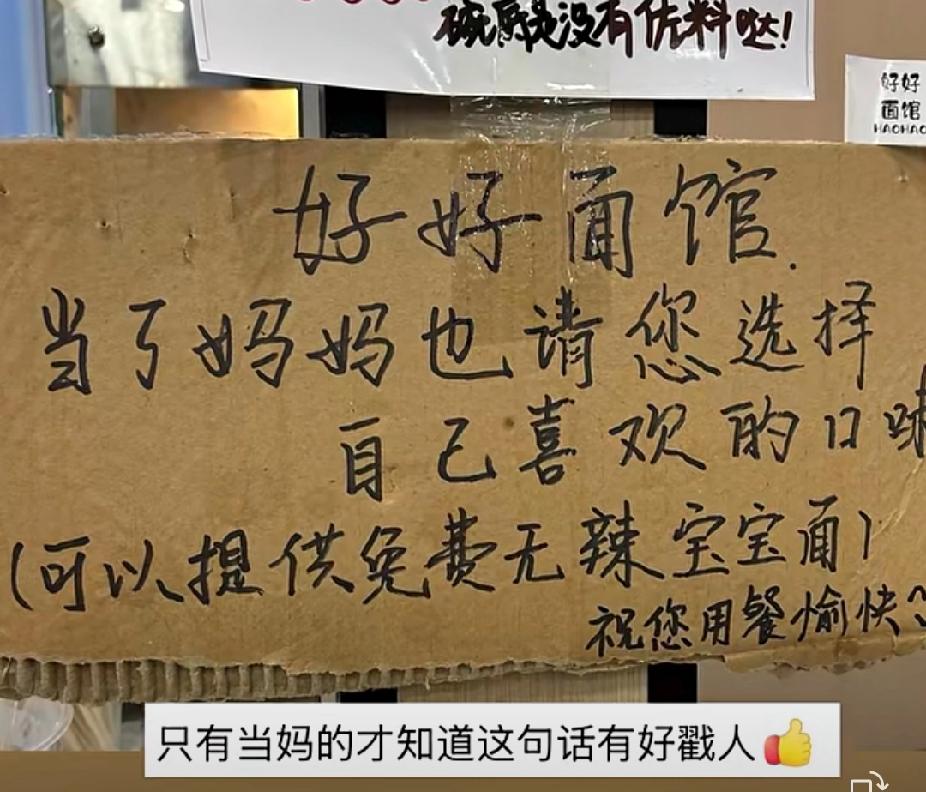 碗底是没有佐料哒!
好好
面馆
HAOHAO
好好面馆.
当了妈妈也请您选择
自己喜欢的口味
(可以提供免费无辣宝宝面)
祝您用餐愉快~
只有当妈的才知道这句话有好戳人👍